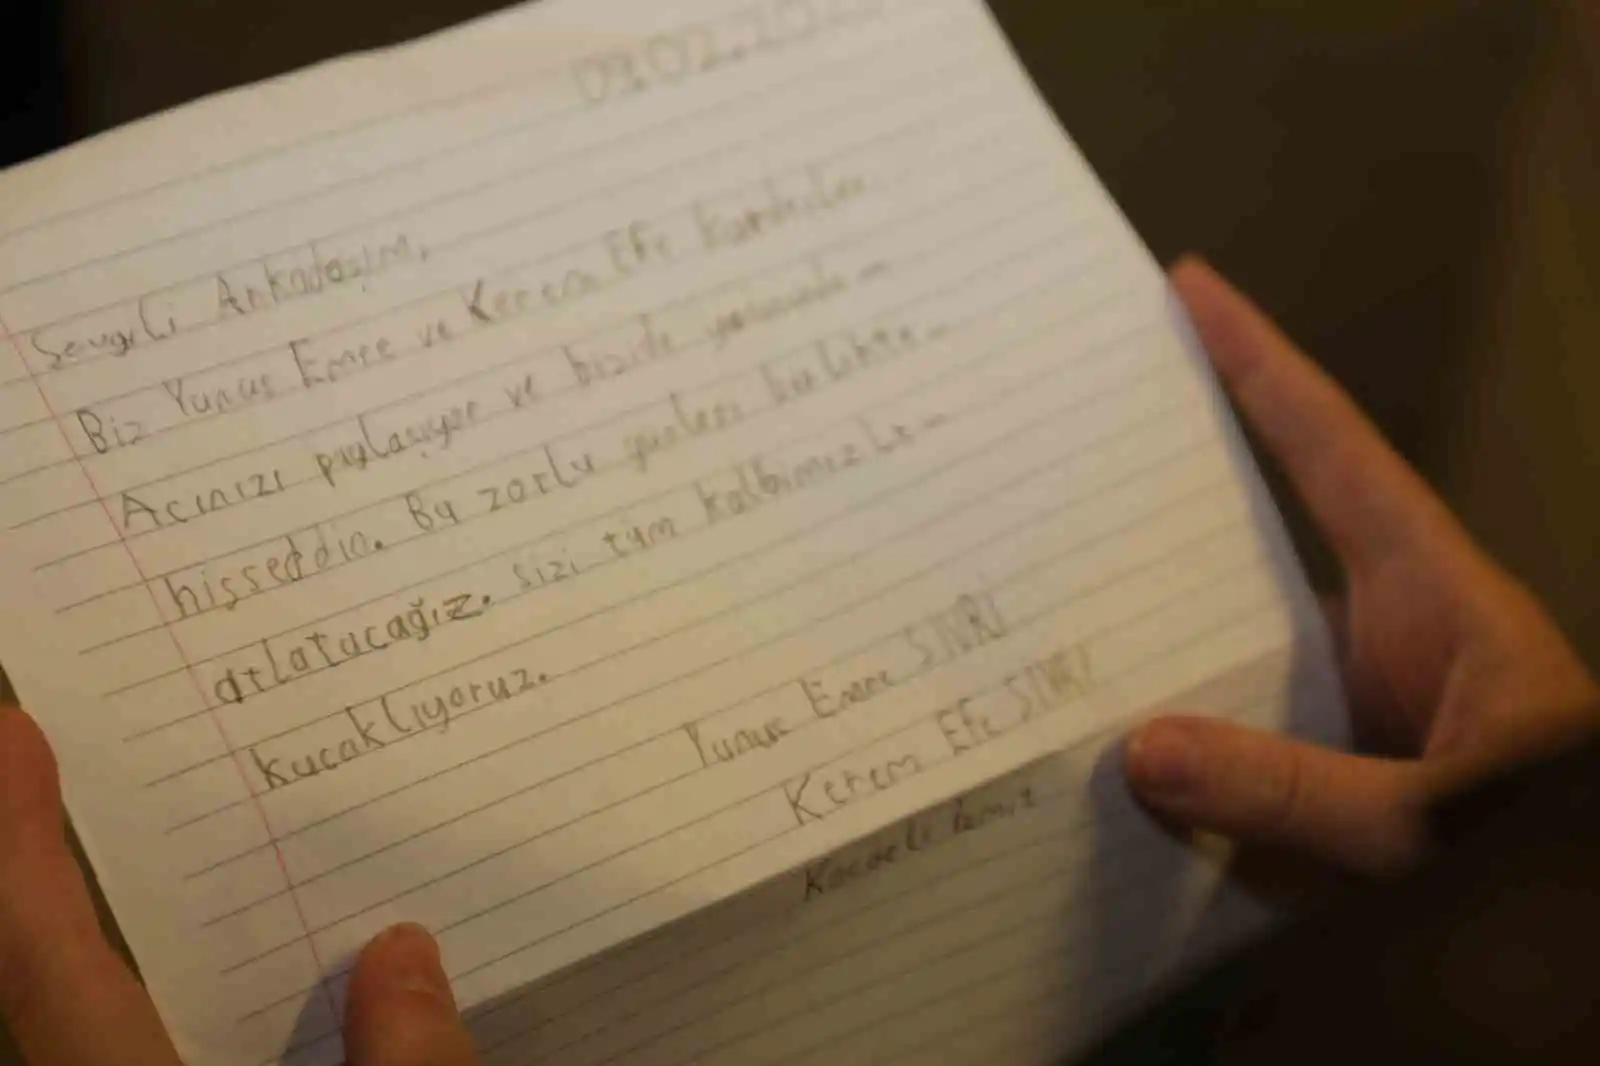 09.02.20
Sevgili Arkadaşım,
Biz Yunus Emre ve Kerem Efe kardeşler
Acınızı paylaşıyor ve bizide yanınızda-
hisseddin. Bu zorlu günleri birlikte-
atlatacağız. sizi tüm kalbimizle-
kucaklıyoruz.
Yunus Emre SİVRİ
Kerem Efe SİVRİ
Kocaeli İzmit